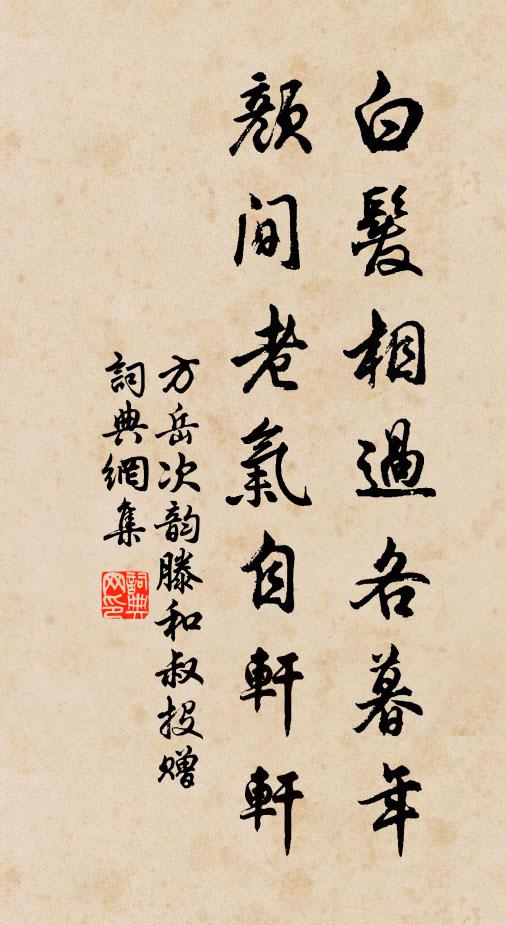 白髮相過各暮年
顏間老氣自軒軒
方岳次韵滕和叔投贈
詞典網集
詞典网印